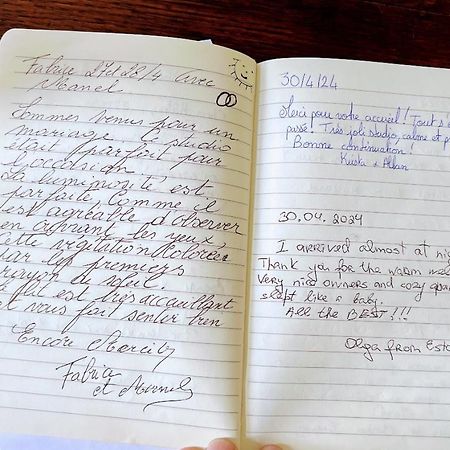 Fabrice 27 et 28/4 avec
Manel
Sommes venus pour un
mariage. Le studio
était parfait pour
l'occasion.
La luminosité est
parfaite, comme il
est agréable d'observer
en ouvrant les yeux
cette végétation colorée
par les premiers
rayon de soleil.
est très accueillant
et vous fait sentir
Encore Merci
Fabrice
et Manel
30/4/24
Merci pour votre accueil! Tout s'
passé! Très joli studio, calme et
Bonne continuation!
30.04.2024
I arrived almost at
Thank you for the warm
very nice owners and cozy
slept like a baby.
All the BEST!!!
Olga from